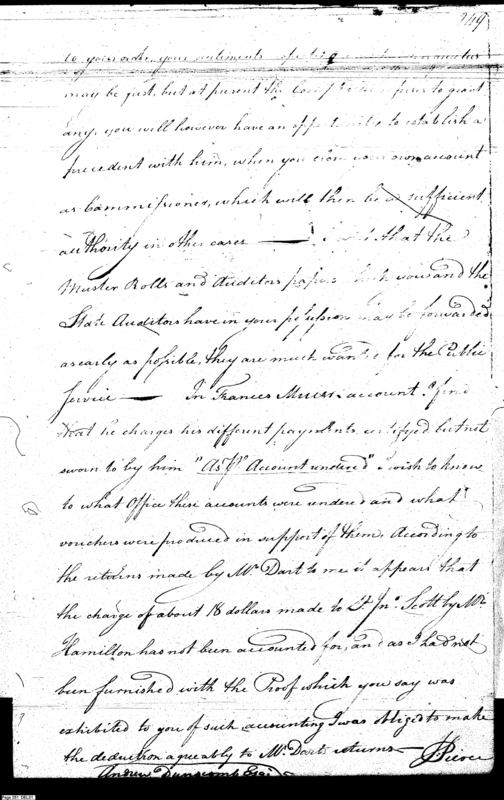 249
to your order, your sentiments
may be just, but at present the refuses to grant
any, you will however have an opportunity to establish a
precedent with him, when you close your own account
as Commissioner, which will then be a sufficient
authority in other cases — I wish that the
Muster Rolls and Auditors papers which you and the
State Auditors have in your possession may be forwarded
as early as possible, they are much wanted for the Public
Service — In Frances account I find
that he charges his different payments certified but not
sworn to by him "As pr. Account rendered" I wish to know
to what Office these accounts were rendered and what
vouchers were produced in support of them. According to
the returns made by Mr. Dart to me it appears that
the charge of about 18 dollars made to Lt. Jno. Scott by Mr.
Hamilton has not been accounted for, and as I had not
been furnished with the Proof which you say was
exhibited to you of such accounting I was obliged to make
the deduction agreeably to Mr. Dart's returns — J Pierce
Andrew Dunscomb Esqr.